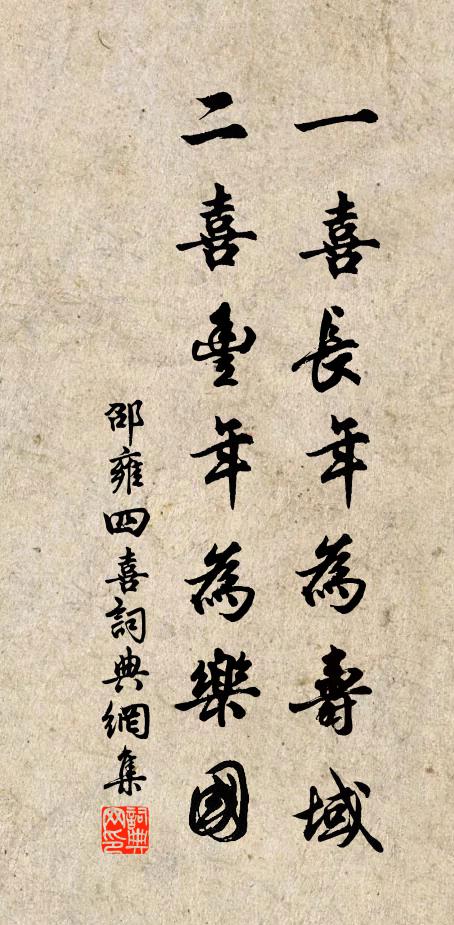 一喜長年為壽域
二喜豐年為樂國
邵雍四喜詞典網集
詞典
网印